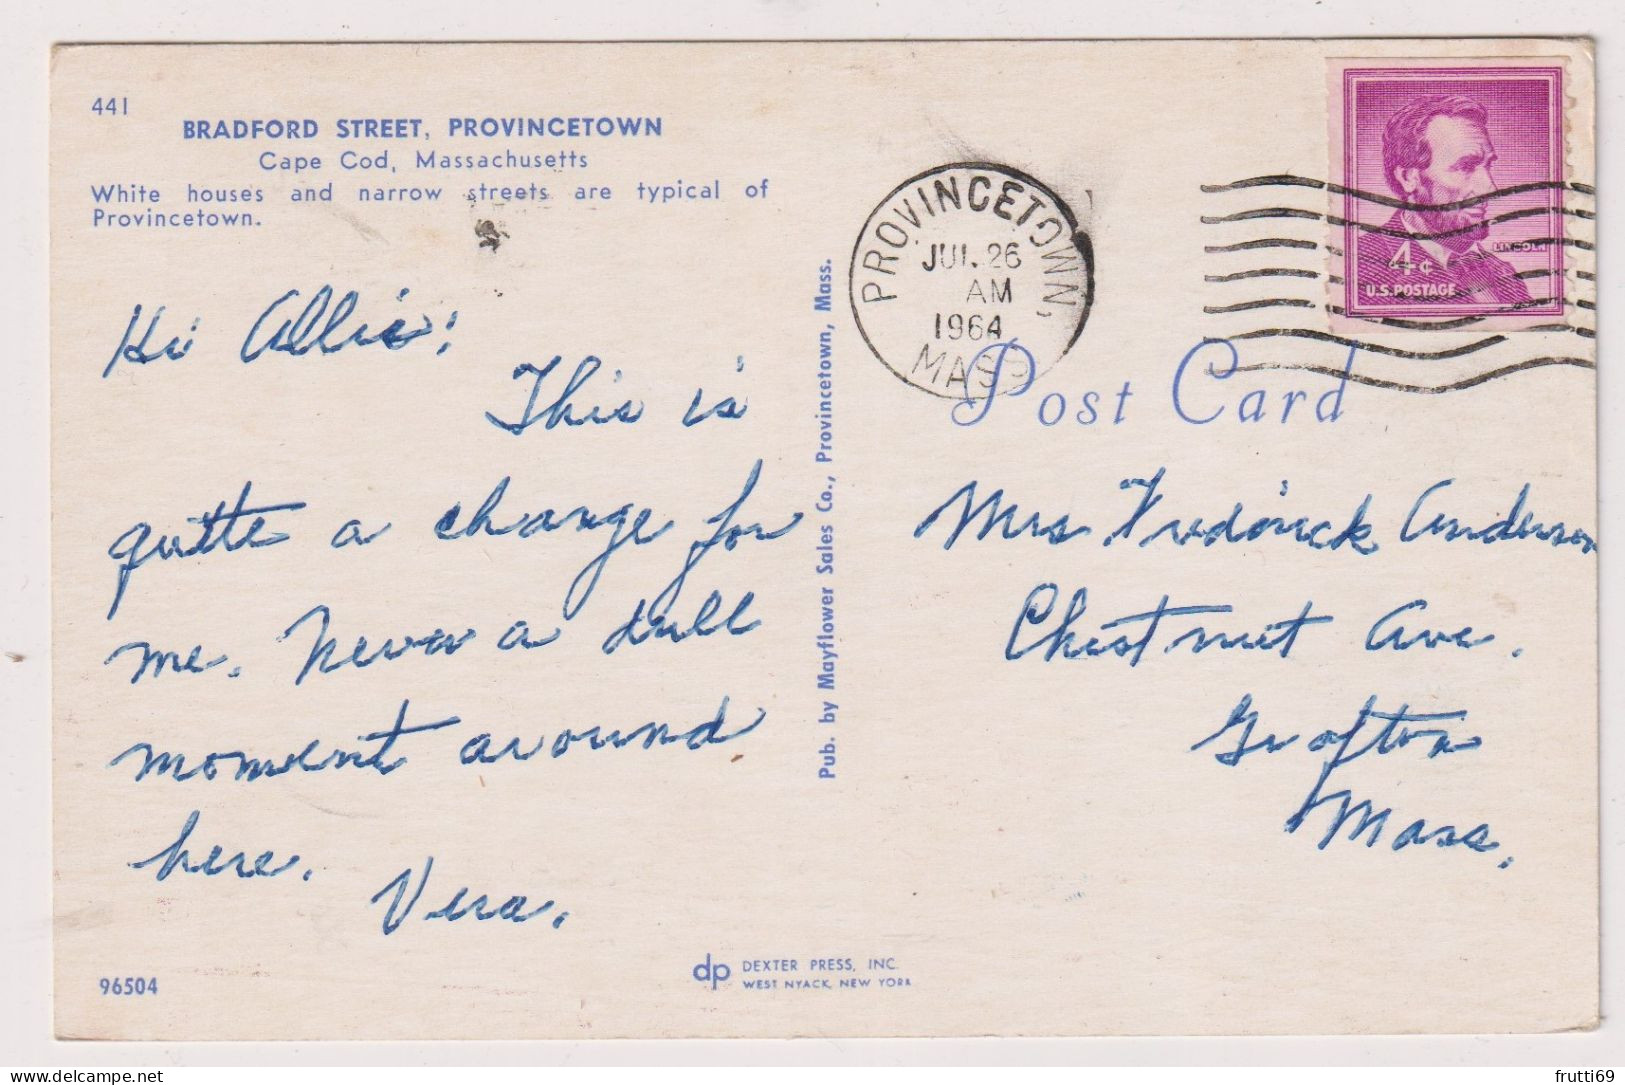 441
BRADFORD STREET, PROVINCETOWN
Cape Cod, Massachusetts
White houses and narrow streets are typical of
Provincetown.
Hi Allie!
This is
quite a change for
me. Never a dull
moment around
here.
Vera.
96504
Pub. by Mayflower Sales Co., Provincetown, Mass.
dp DEXTER PRESS, INC.
WEST NYACK, NEW YORK
PROVINCETOWN,
JUL 26
AM
1964
MASS
LINCOLN
4¢
U.S. POSTAGE
Post Card
Mrs. Fredrick Anderson
Chestnut Ave.
Grafton
Mass.
delcampe.net
frutti69